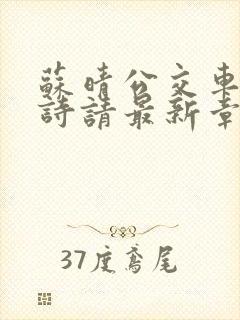 蘇晴公交車
詩請最新章
37度鳶尾